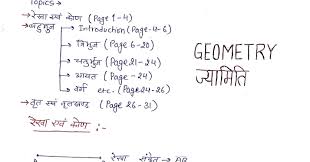 Topics →
→ रेखा एवं कोण (Page 1-4)
→ बहुभुज → Introduction (Page-4-6)
→ त्रिभुज (Page 6-20)
→ चतुर्भुज (Page 21-24)
→ आयत (Page -24)
→ वर्ग etc. (Page 24-26)
→ वृत एवं वृतखण्ड (Page 26-31)
GEOMETRY
ज्यामिति
रेखा एवं कोण :-
→ रेखा संकेत → AB